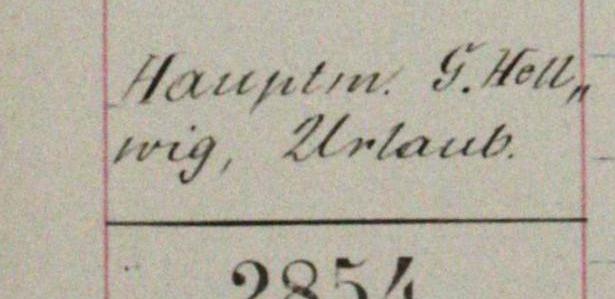 Hauptm. G. Hell„
wig, Urlaub.
2854